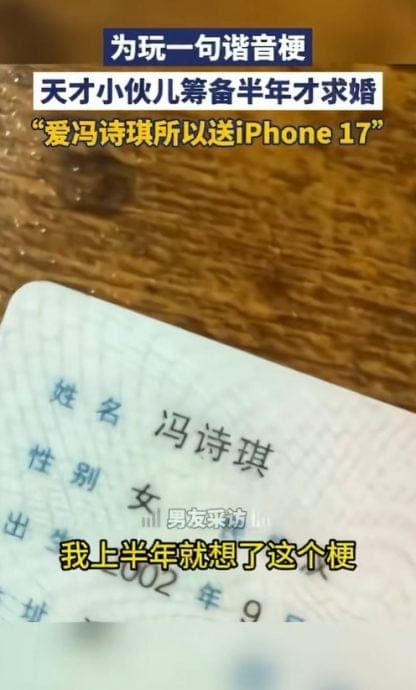 为玩一句谐音梗
天才小伙儿筹备半年才求婚
“爱冯诗琪所以送iPhone 17”
姓名 冯诗琪
性别 女
男友采访
我上半年就想了这个梗
出生 2002 年 9
址